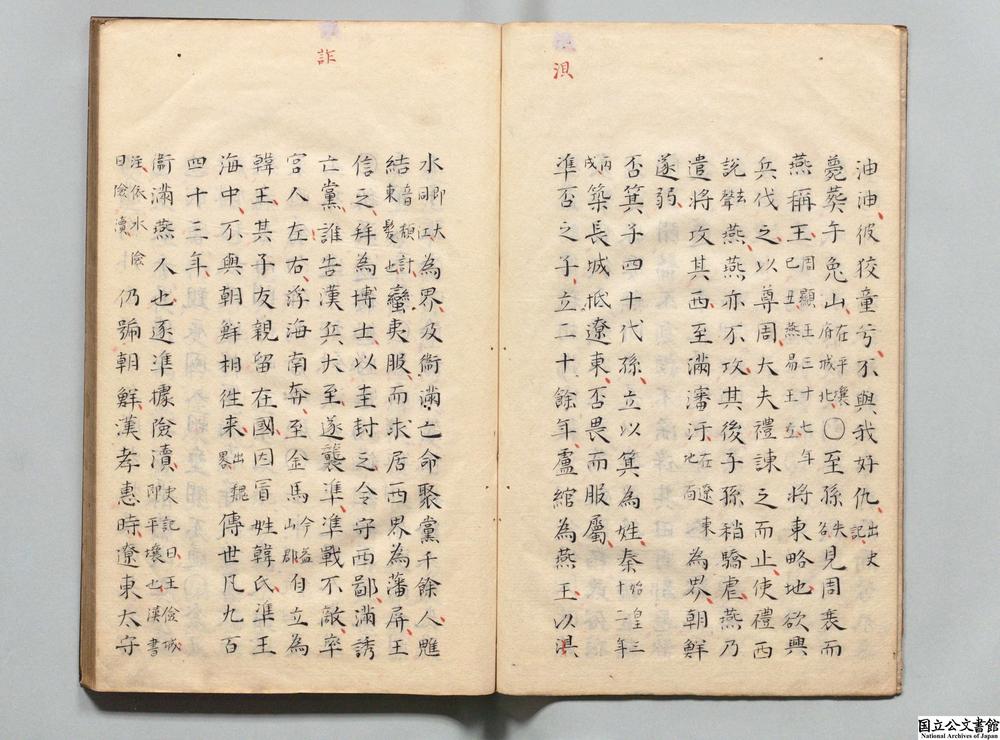 淏
油油彼狡童兮不與我好仇出史記
薨葬于兔山在平壤府城北○至孫失名見周衰而
燕稱王周顯王三十七年己丑燕易王立將東略地欲興
兵伐之以尊周大夫禮諫之而止使禮西
說去聲燕燕亦不攻其後子孫稍驕虐燕乃
遣將攻其西至滿潘汗地在遼東西為界朝鮮
遂弱
否箕子四十代孫立以箕為姓秦始皇三十三年
丙戌築長城抵遼東否畏而服屬
準否之子立二十餘年盧綰為燕王以淏
詐
水即大同江為界及衞滿亡命聚黨千餘人魋
結音頹計東髮也蠻夷服而求居西界為藩屏王
信之拜為博士以圭封之令守西鄙滿誘
亡黨誰告漢兵大至遂襲準準戰不敵率
宮人左右浮海南奔至金馬今益山郡自立為
韓王其子友親留在國因冒姓韓氏準王
海中不與朝鮮相徃来出輯畧傳世凡九百
四十三年
衞滿燕人也逐準據險瀆史記曰王儉城即平壤也漢書
注依水險曰險瀆仍號朝鮮漢孝惠時遼東太守
国立公文書館
National Archives of Japan